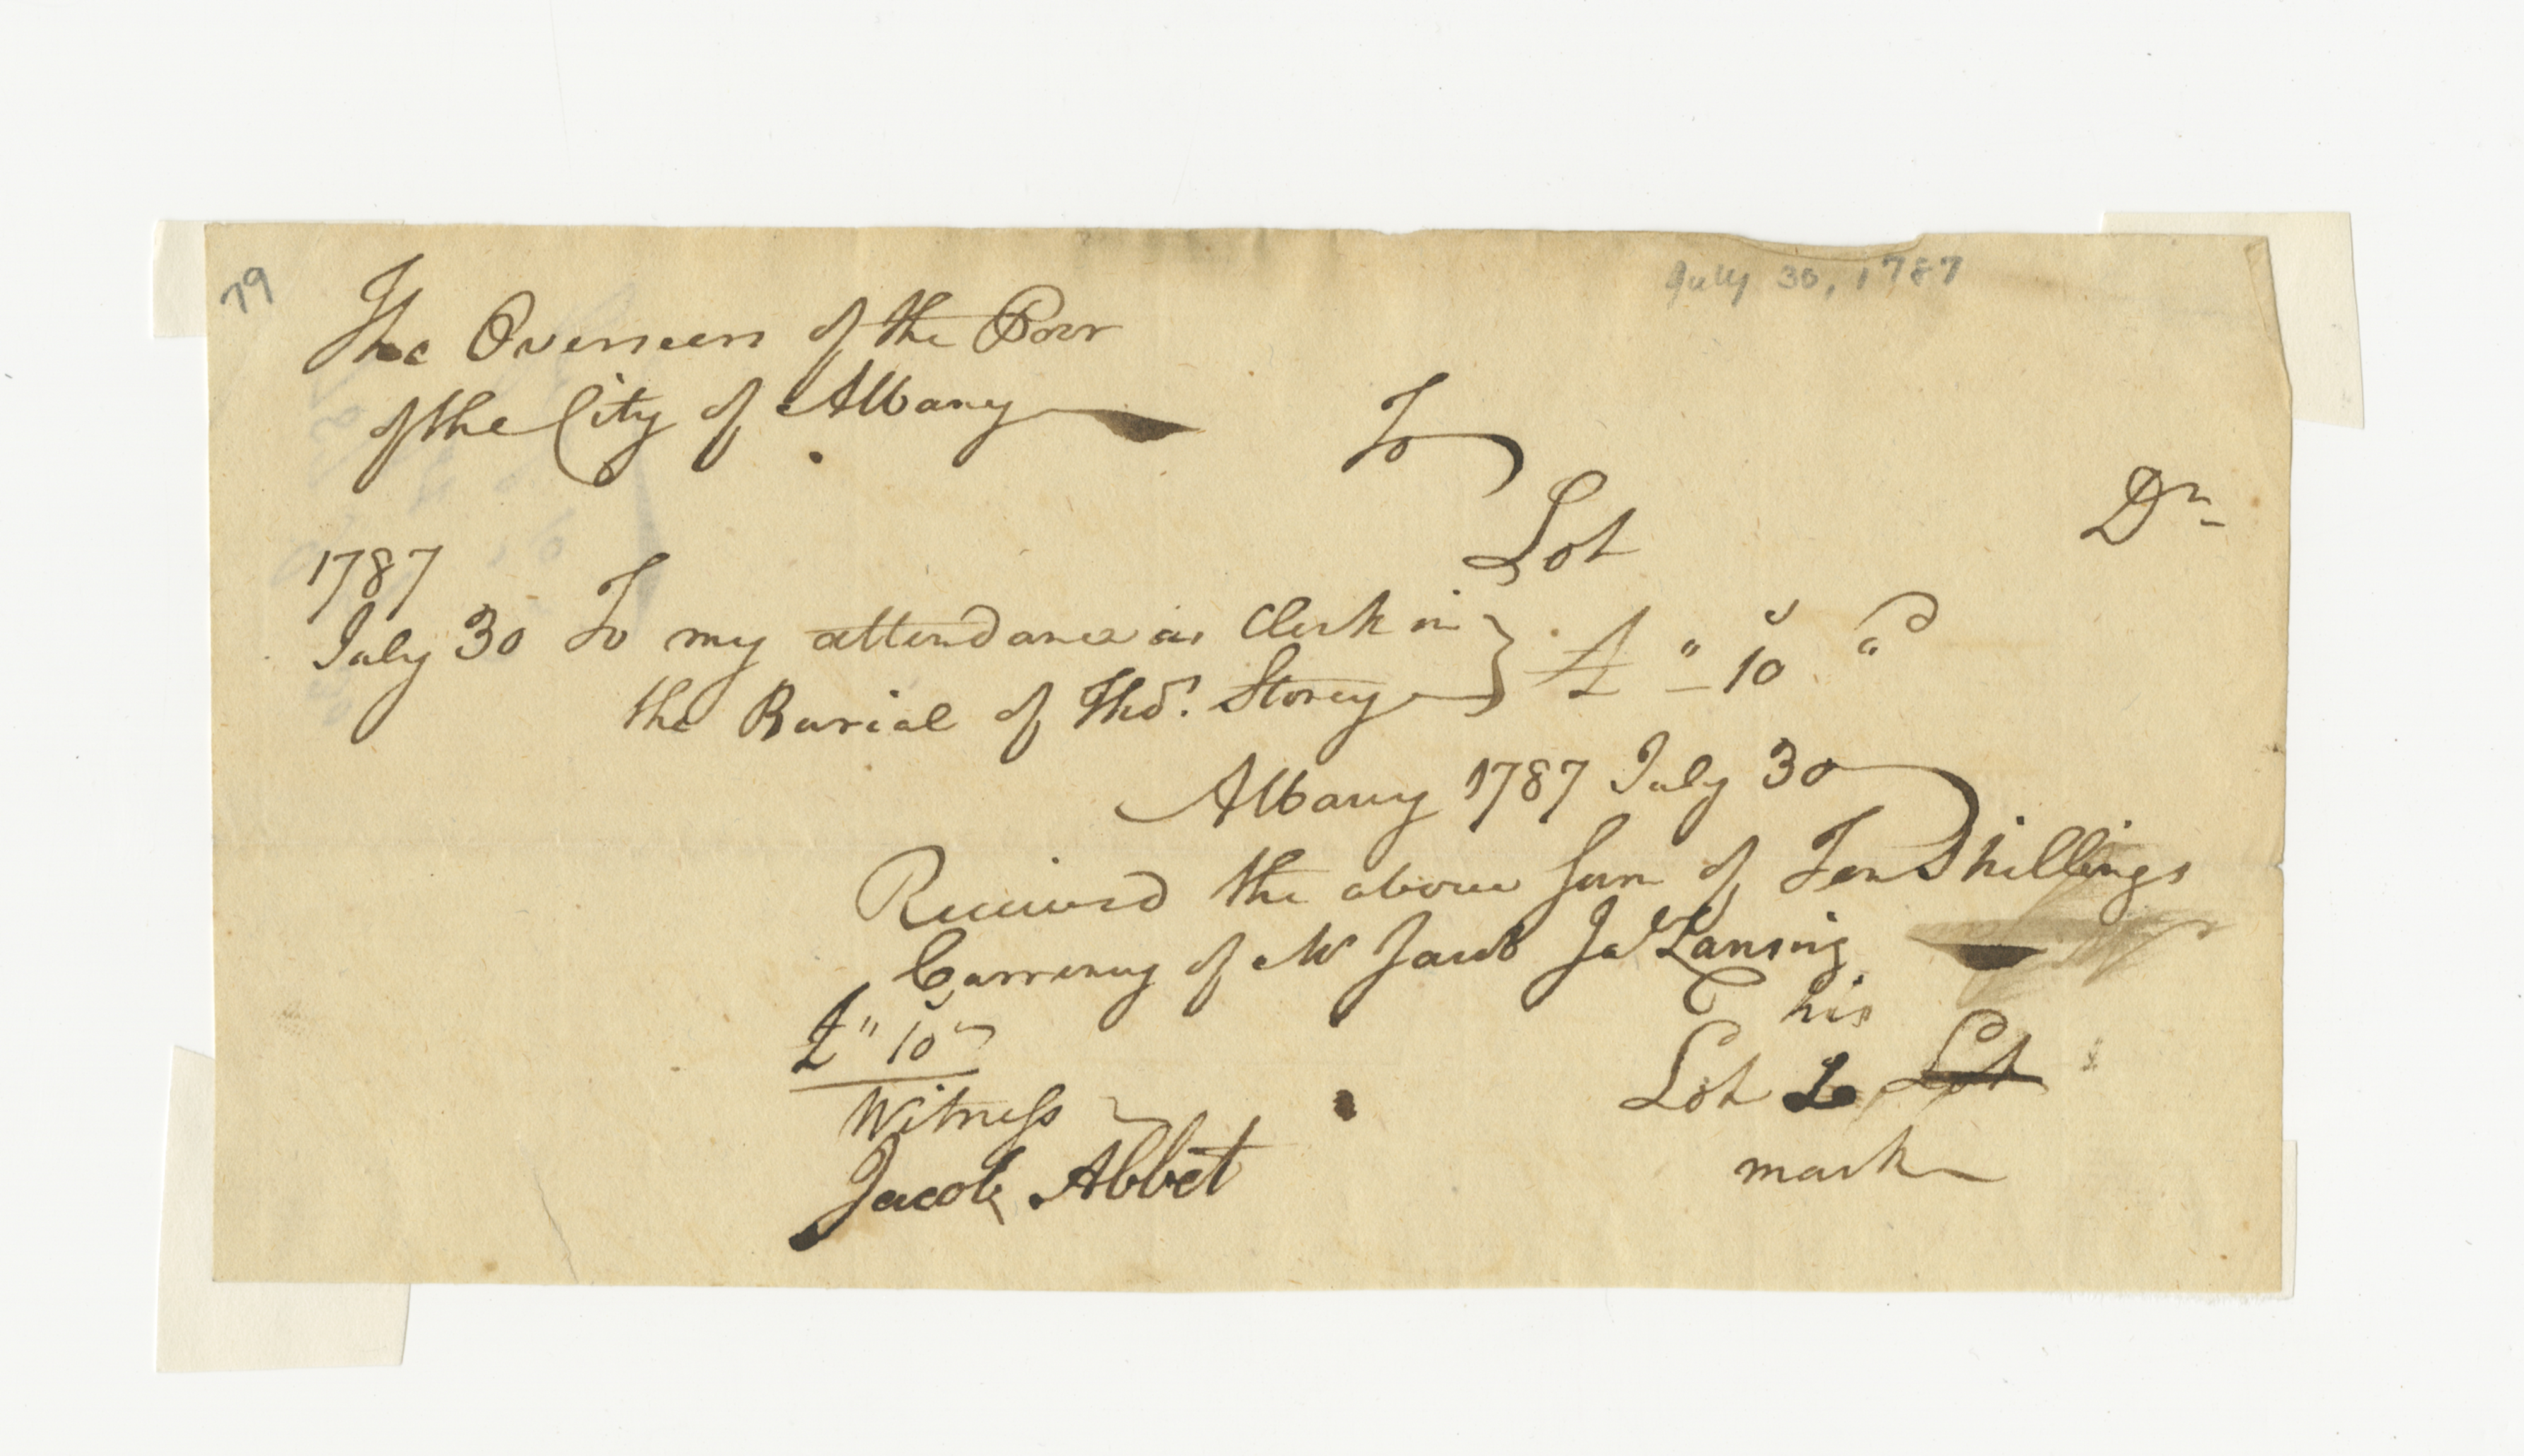 79
July 30, 1787
The Overseers of the Poor
of the City of Albany
To
Lot
Dr
1787
July 30 To my attendance as Clerk in
the Burial of Thos. Storey } £ " 10 "
Albany 1787 July 30
Received the above Sum of Ten Shillings
Currency of Mr Jacob Ja Lansing
£ " 10
his
Lot L Lot
mark
Witness
Jacob Abbet